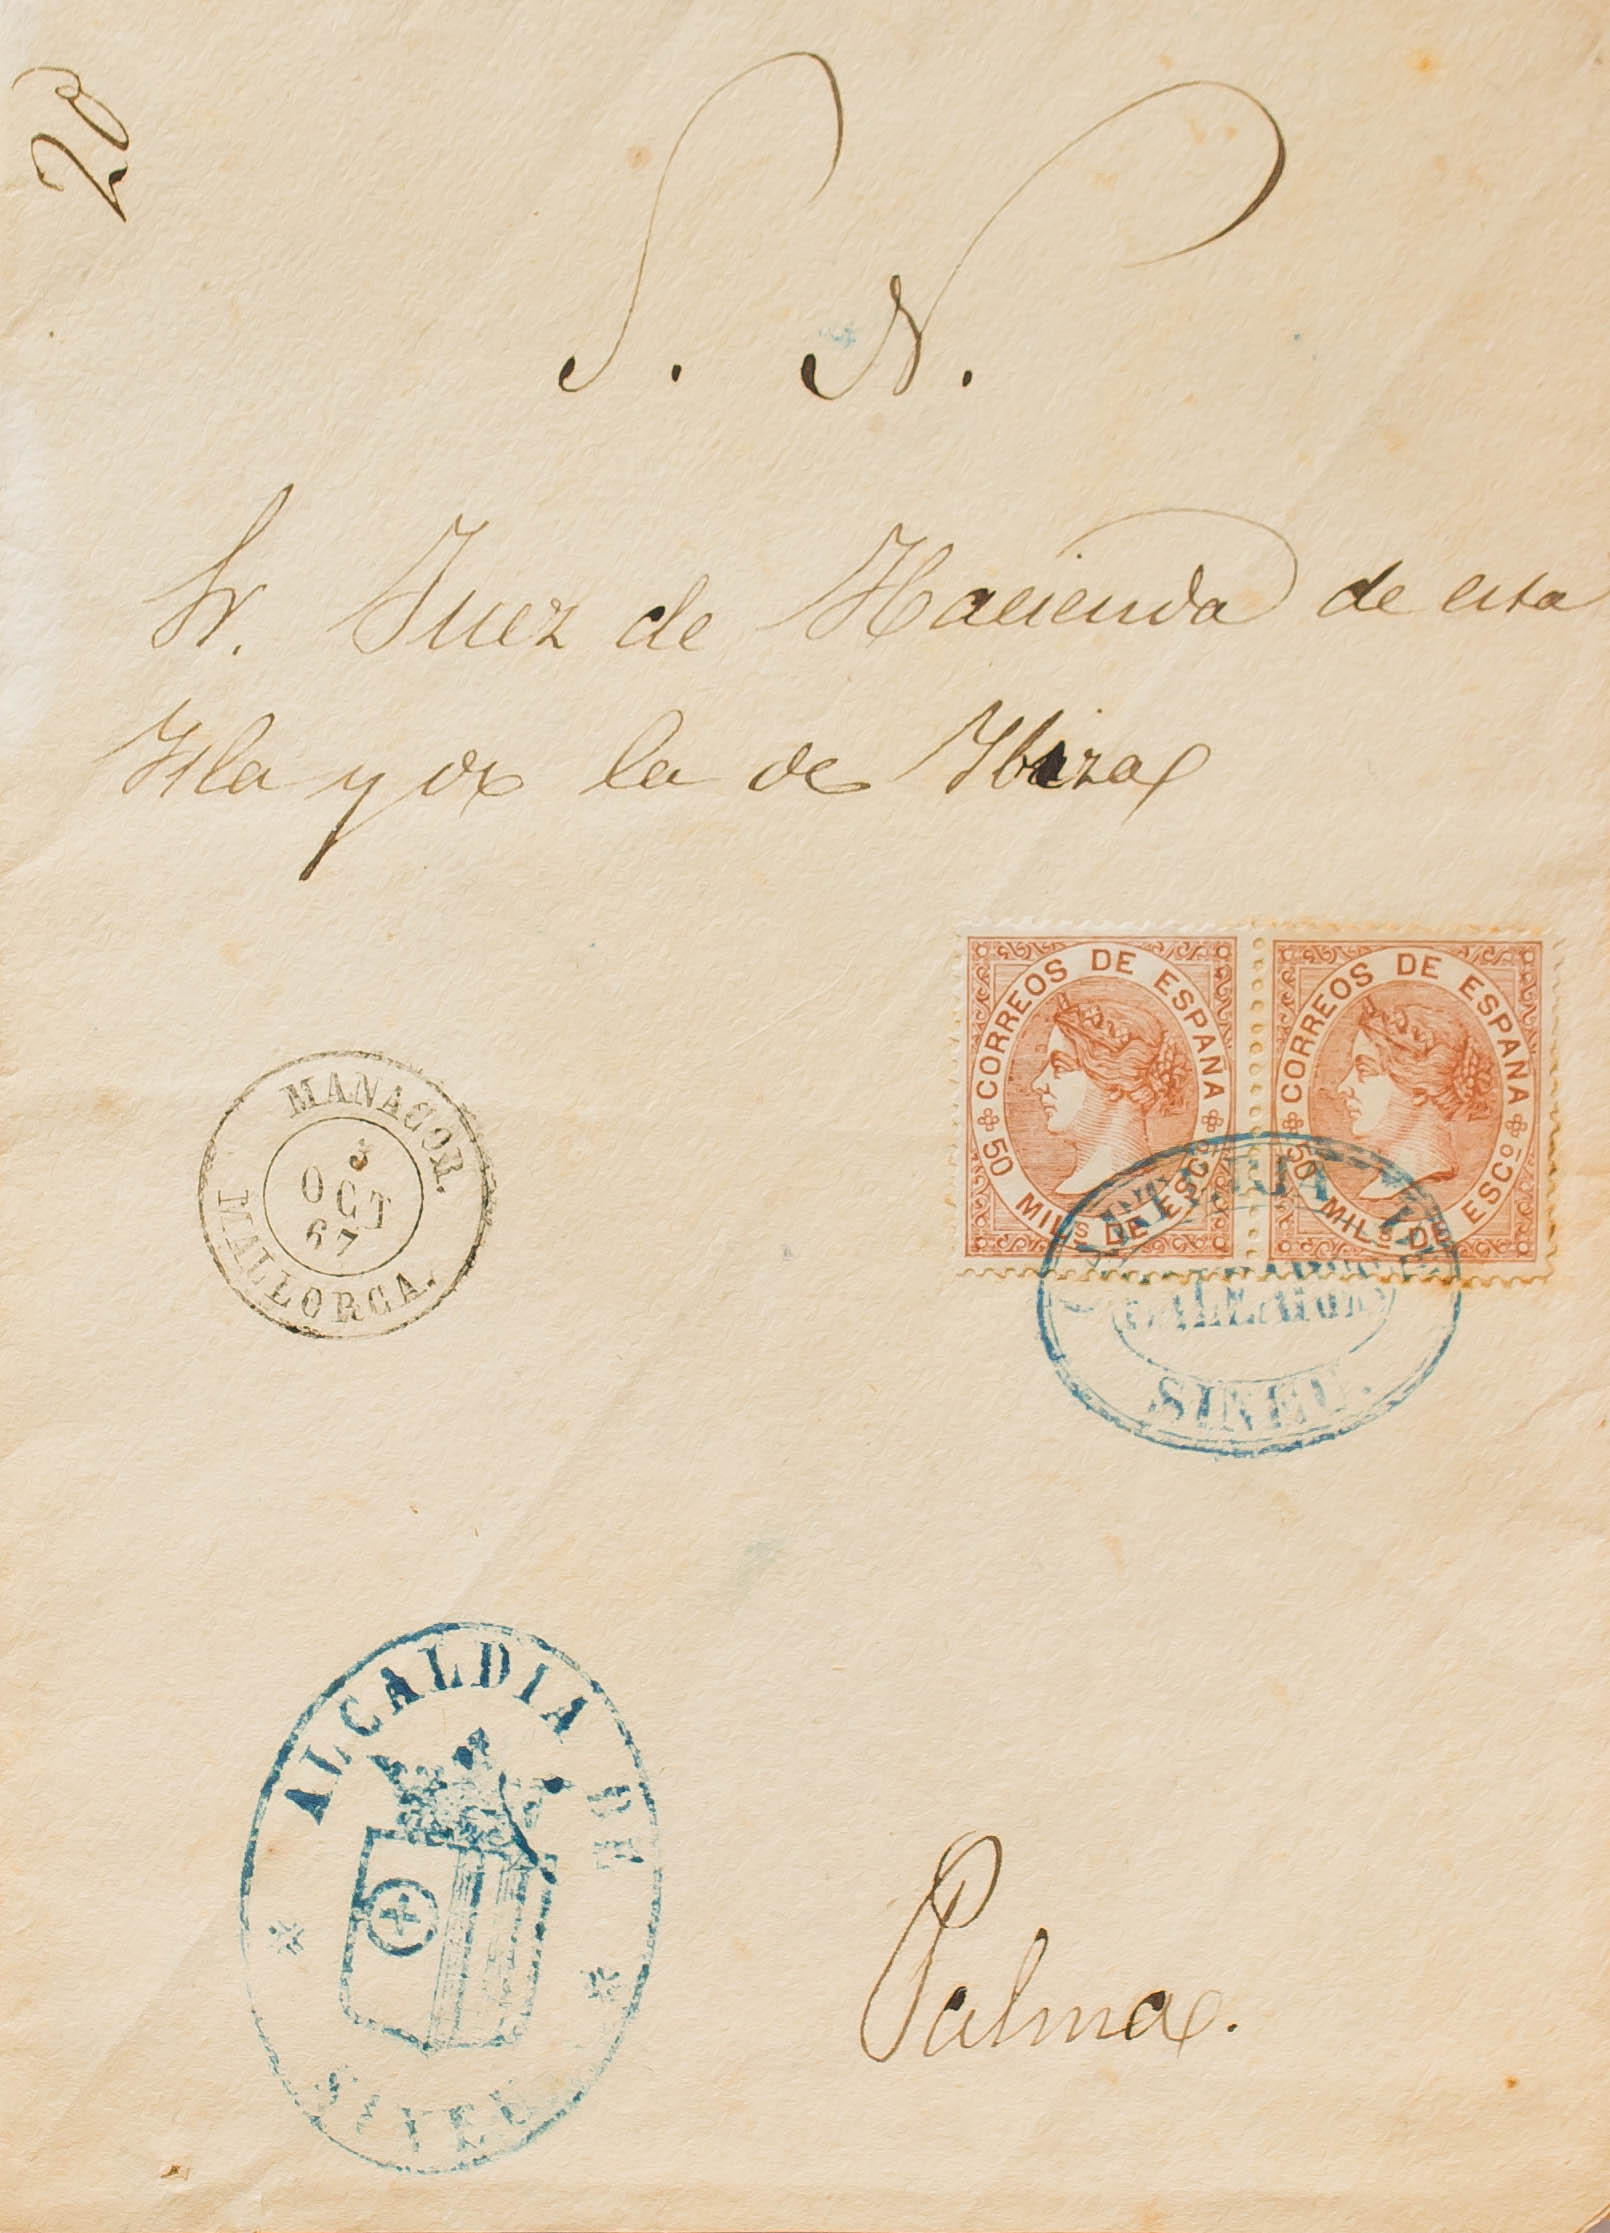 20
S. N.
Sr. Juez de Hacienda de esta
Isla y de la de Ibiza
CORREOS DE ESPAÑA
50 MILS DE ESCO
CORREOS DE ESPAÑA
50 MILS DE ESCO
MANACOR.
3
OCT
67
MALLORCA.
SINEU.
ALCALDIA DE
SINEU
Palma.